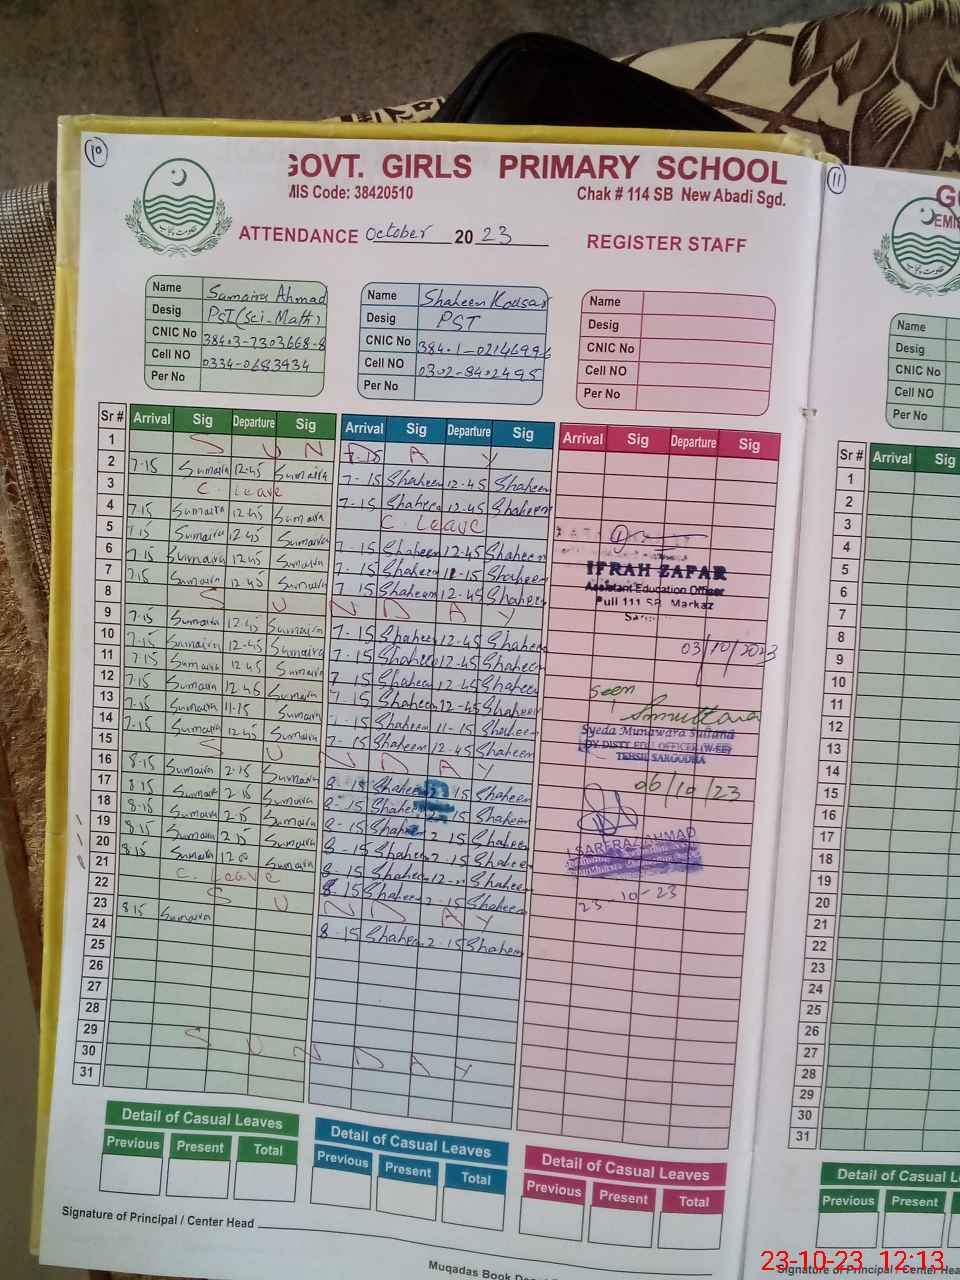 10
GOVT. GIRLS PRIMARY SCHOOL
MIS Code: 38420510 Chak # 114 SB New Abadi Sgd.
ATTENDANCE October 2023 REGISTER STAFF
Name Sumaira Ahmad
Desig PST (Sci-Math)
CNIC No 38403-7303668-8
Cell NO 0334-0683934
Per No
Name Shaheen Kousar
Desig PST
CNIC No 38401-0214699-6
Cell NO 0302-8402495
Per No
Name
Desig
CNIC No
Cell NO
Per No
Sr # Arrival Sig Departure Sig Arrival Sig Departure Sig Arrival Sig Departure Sig
1 S U N D A Y
2 7-15 Sumaira 12-45 Sumaira 7-15 Shaheen 12-45 Shaheen
3 C. Leave 7-15 Shaheen 12-45 Shaheen
4 7-15 Sumaira 12-45 Sumaira C. Leave
5 7-15 Sumaira 12-45 Sumaira 7-15 Shaheen 12-45 Shaheen
6 7-15 Sumaira 12-45 Sumaira 7-15 Shaheen 11-15 Shaheen
7 7-15 Sumaira 12-45 Sumaira 7-15 Shaheen 12-45 Shaheen
8 S U N D A Y
9 7-15 Sumaira 12-45 Sumaira 7-15 Shaheen 12-45 Shaheen
10 7-15 Sumaira 12-45 Sumaira 7-15 Shaheen 12-45 Shaheen
11 7-15 Sumaira 12-45 Sumaira 7-15 Shaheen 12-45 Shaheen
12 7-15 Sumaira 12-45 Sumaira 7-15 Shaheen 12-45 Shaheen
13 7-15 Sumaira 11-15 Sumaira 7-15 Shaheen 11-15 Shaheen
14 7-15 Sumaira 12-45 Sumaira 7-15 Shaheen 12-45 Shaheen
15 S U N D A Y
16 8-15 Sumaira 2-15 Sumaira 8-15 Shaheen 2-15 Shaheen
17 8-15 Sumaira 2-15 Sumaira 8-15 Shaheen 2-15 Shaheen
18 8-15 Sumaira 2-15 Sumaira 8-15 Shaheen 2-15 Shaheen
19 8-15 Sumaira 2-15 Sumaira 8-15 Shaheen 2-15 Shaheen
20 8-15 Sumaira 12-00 Sumaira 8-15 Shaheen 12-00 Shaheen
21 C. Leave 8-15 Shaheen 2-15 Shaheen
22 S U N D A Y
23 8-15 Sumaira 8-15 Shaheen 2-15 Shaheen
24
25
26
27
28
29 S U N D A Y
30
31
IFRAH ZAFAR
Assistant Education Officer
Pull 111 SB, Markaz
03/10/2023
seen
Syeda Munawara Sultana
DY. DISTT. EDU OFFICER (W-EE)
TEHSIL SARGODHA
06/10/23
SARFRAZ AHMAD
23-10-23
Detail of Casual Leaves
Previous Present Total
Detail of Casual Leaves
Previous Present Total
Detail of Casual Leaves
Previous Present Total
Signature of Principal / Center Head
Muqadas Book
11
EMIS
Name
Desig
CNIC No
Cell NO
Per No
Sr # Arrival Sig
1
2
3
4
5
6
7
8
9
10
11
12
13
14
15
16
17
18
19
20
21
22
23
24
25
26
27
28
29
30
31
Detail of Casual
Previous Present
Signature of Principal / Center Head
23-10-23 12:13